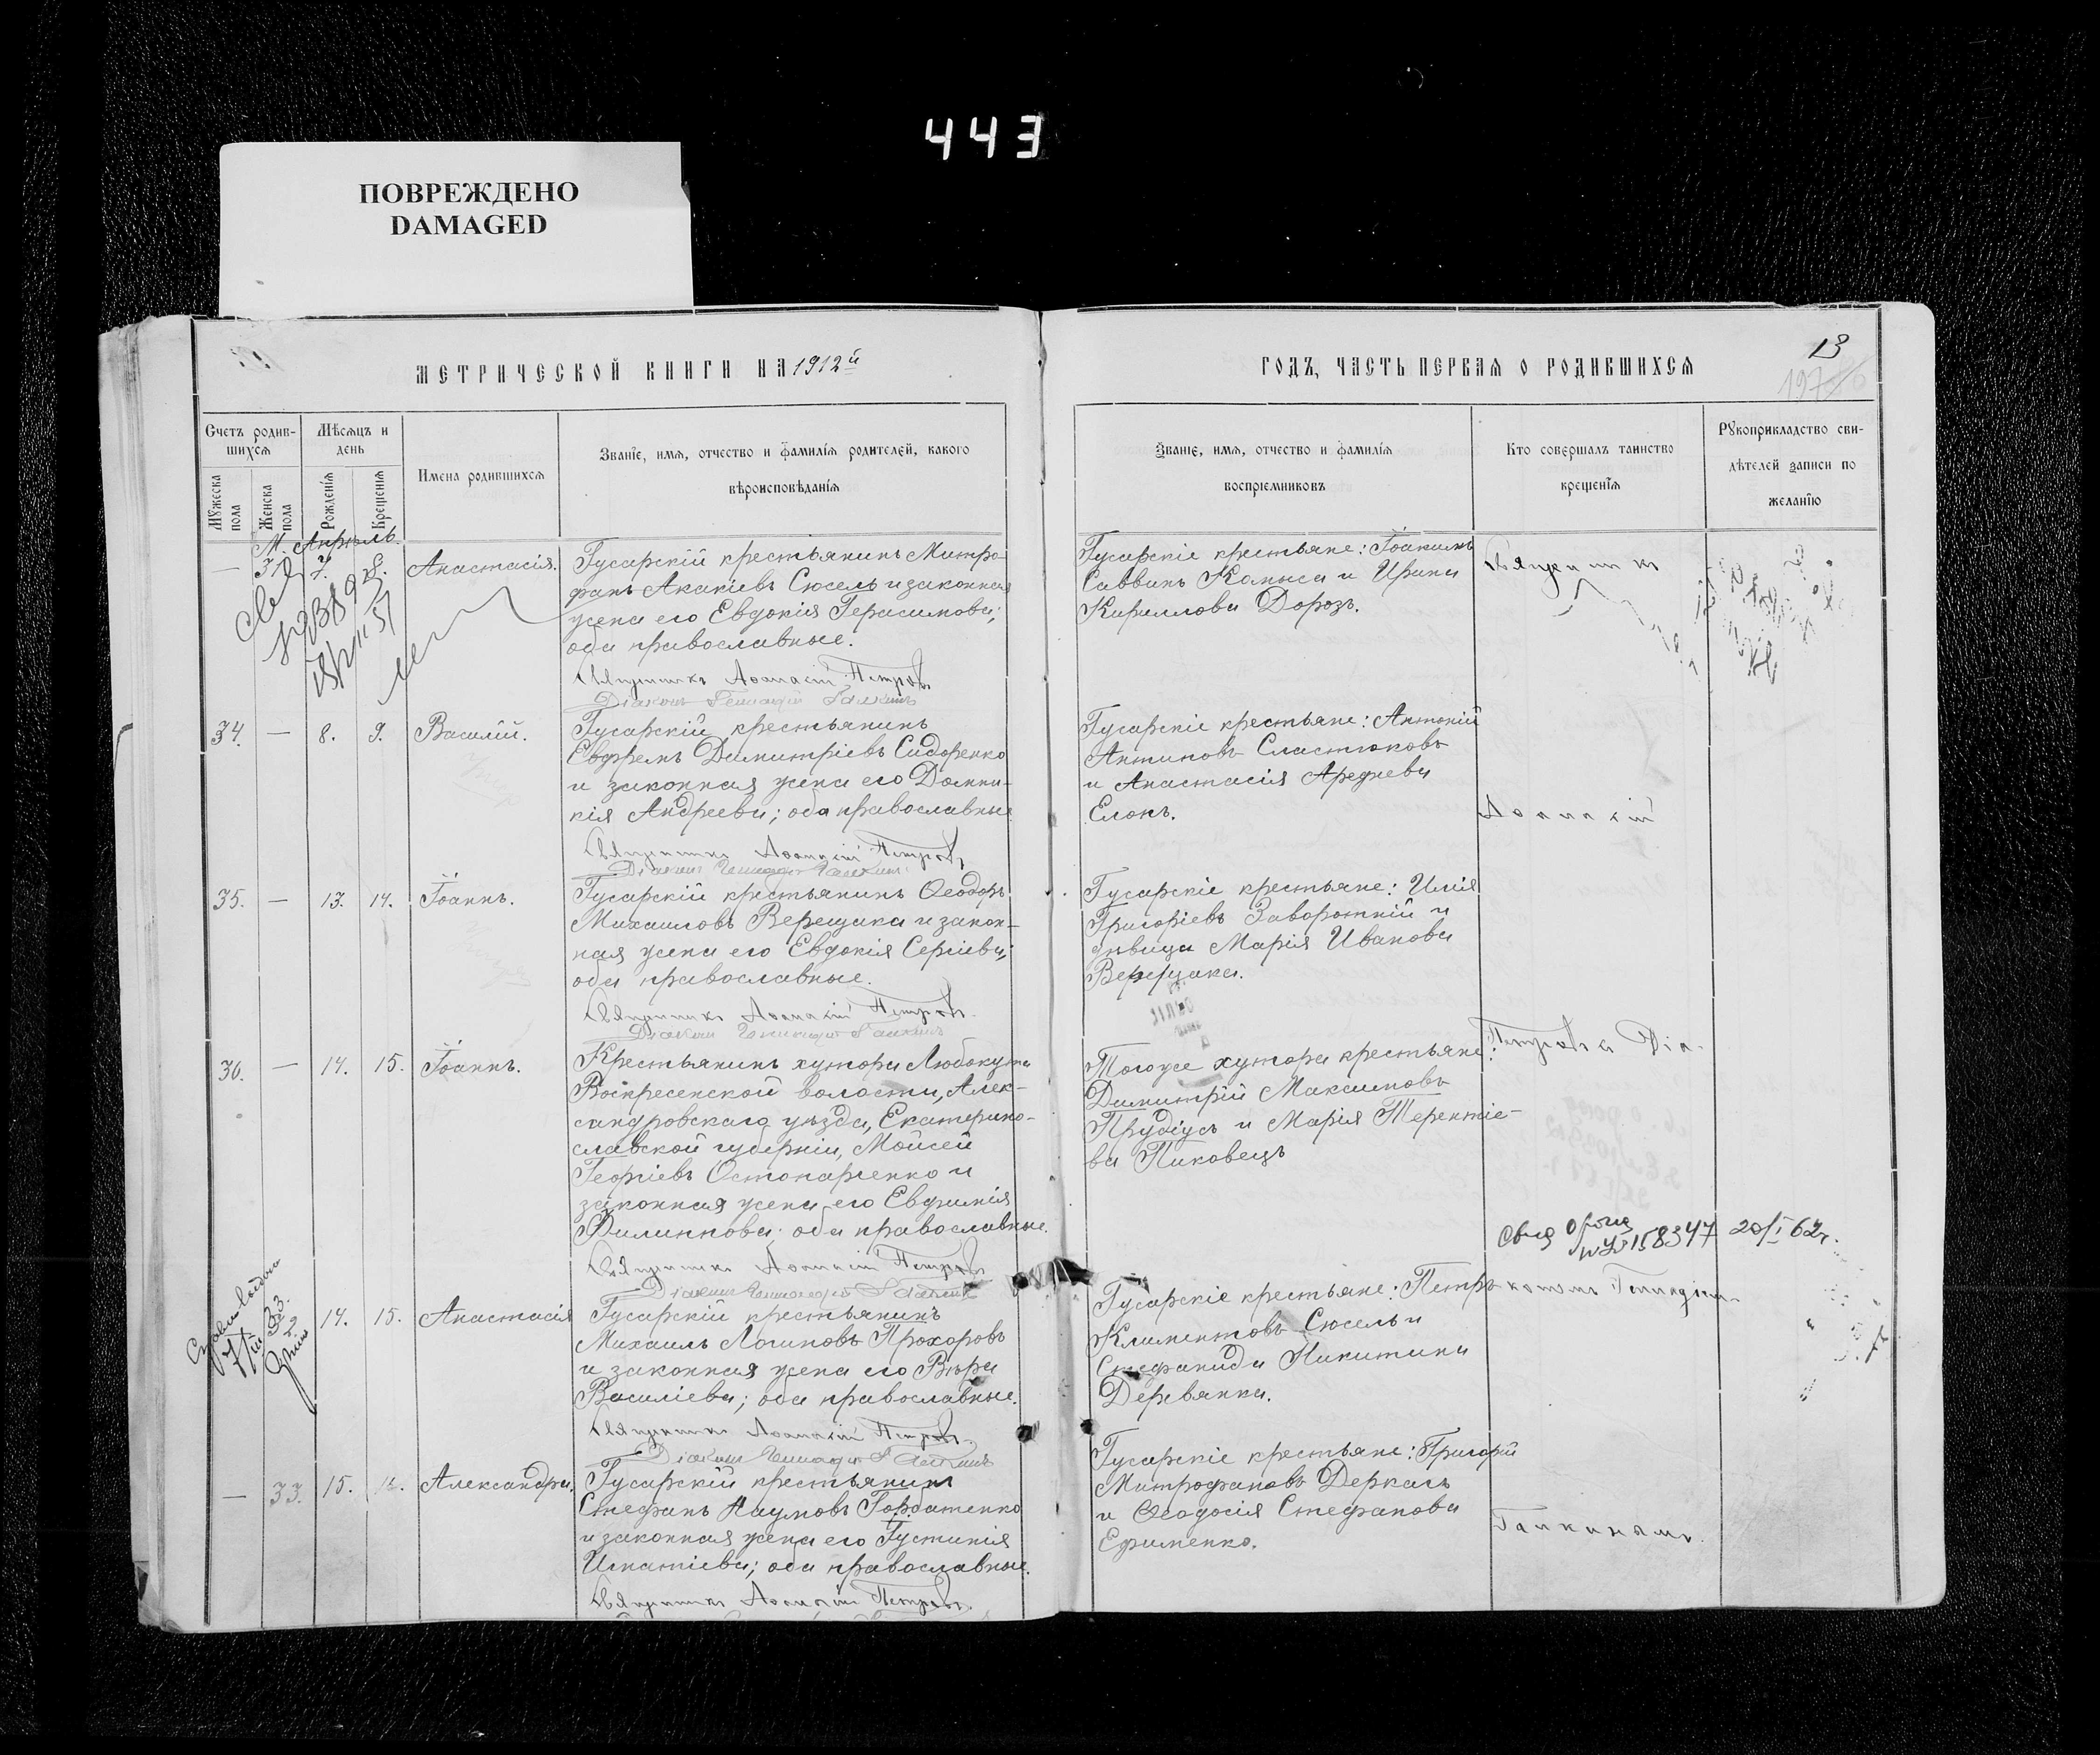 443
ПОВРЕЖДЕНО
DAMAGED
МЕТРИЧЕСКОЙ КНИГИ НА 1912й
Счетъ родив-
шихся
Мужеска пола
Женска пола
Мѣсяцъ и
день
Рожденія
Крещенія
Имена родившихся
Званіе, имя, отчество и фамилія родителей, какого
вѣроисповѣданія
М. Апрѣль.
— 31. 7. 8. Анастасія.
Гусарскій крестьянинъ Митро-
фанъ Акакіевъ Сюсель и законная
жена его Евдокія Герасимова;
оба православные.
Священникъ Аѳанасій Петровъ
Діаконъ Геннадій Галкинъ
34. — 8. 9. Василій.
Гусарскій крестьянинъ
Евфремъ Димитріевъ Сидоренко
и законная жена его Домни-
кія Андреева; оба православные
Священникъ Аѳанасій Петровъ
Діаконъ Геннадій Галкинъ
35. — 13. 14. Іоаннъ.
Гусарскій крестьянинъ Ѳеодоръ
Михаиловъ Верещака и закон-
ная жена его Евдокія Сергіева;
оба православные.
Священникъ Аѳанасій Петровъ
Діаконъ Геннадій Галкинъ
36. — 14. 15. Іоаннъ.
Крестьянинъ хутора Любокута
Воскресенской волости, Алек-
сандровскаго уѣзда, Екатерино-
славской губерніи, Мойсей
Георгіевъ Остонаренко и
законная жена его Евфимія
Филиппова; оба православные.
Священникъ Аѳанасій Петровъ
Діаконъ Геннадій Галкинъ
14. 15. Анастасія
Гусарскій крестьянинъ
Михаилъ Логиновъ Прохоровъ
и законная жена его Вѣра
Василіева; оба православные.
Священникъ Аѳанасій Петровъ
Діаконъ Геннадій Галкинъ
— 33. 15. Александра.
Гусарскій крестьянинъ
Стефанъ Наумовъ Горбатенко
и законная жена его Іустинія
Игнатіева; оба православные.
Священникъ Аѳанасій Петровъ
13
ГОДЪ, ЧАСТЬ ПЕРВАЯ О РОДИВШИХСЯ
Званіе, имя, отчество и фамилія
воспріемниковъ
Кто совершалъ таинство
крещенія
Рукоприкладство сви-
дѣтелей записи по
желанію
Гусарскіе крестьяне: Іоакимъ
Саввинъ Комыса и Ирина
Кириллова Дорозъ.
Священникъ
Гусарскіе крестьяне: Антоній
Антиповъ Сластюковъ
и Анастасія Ареѳнева
Елонъ.
Аѳанасій
Гусарскіе крестьяне: Илія
Григоріевъ Заворотній и
дѣвица Марія Иванова
Верещака.
Тогоже хутора крестьяне:
Димитрій Максимовъ
Прудіусъ и Марія Терентіе-
ва Пиковецъ
Петровъ съ Діа-
Св-ва о рожд
№ 158347 20/I 62г.
Гусарскіе крестьяне: Петръ
Климентовъ Сюсель и
Стефанида Никитина
Деревянка.
кономъ Геннадіем
Гусарскіе крестьяне: Григорій
Митрофановъ Деркачъ
и Ѳеодосія Стефанова
Ефименко.
Галкинымъ